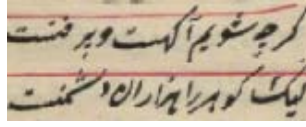 گرچه شویم آگهست و پر فنست
لیک گوهر را هزاران دشمنست